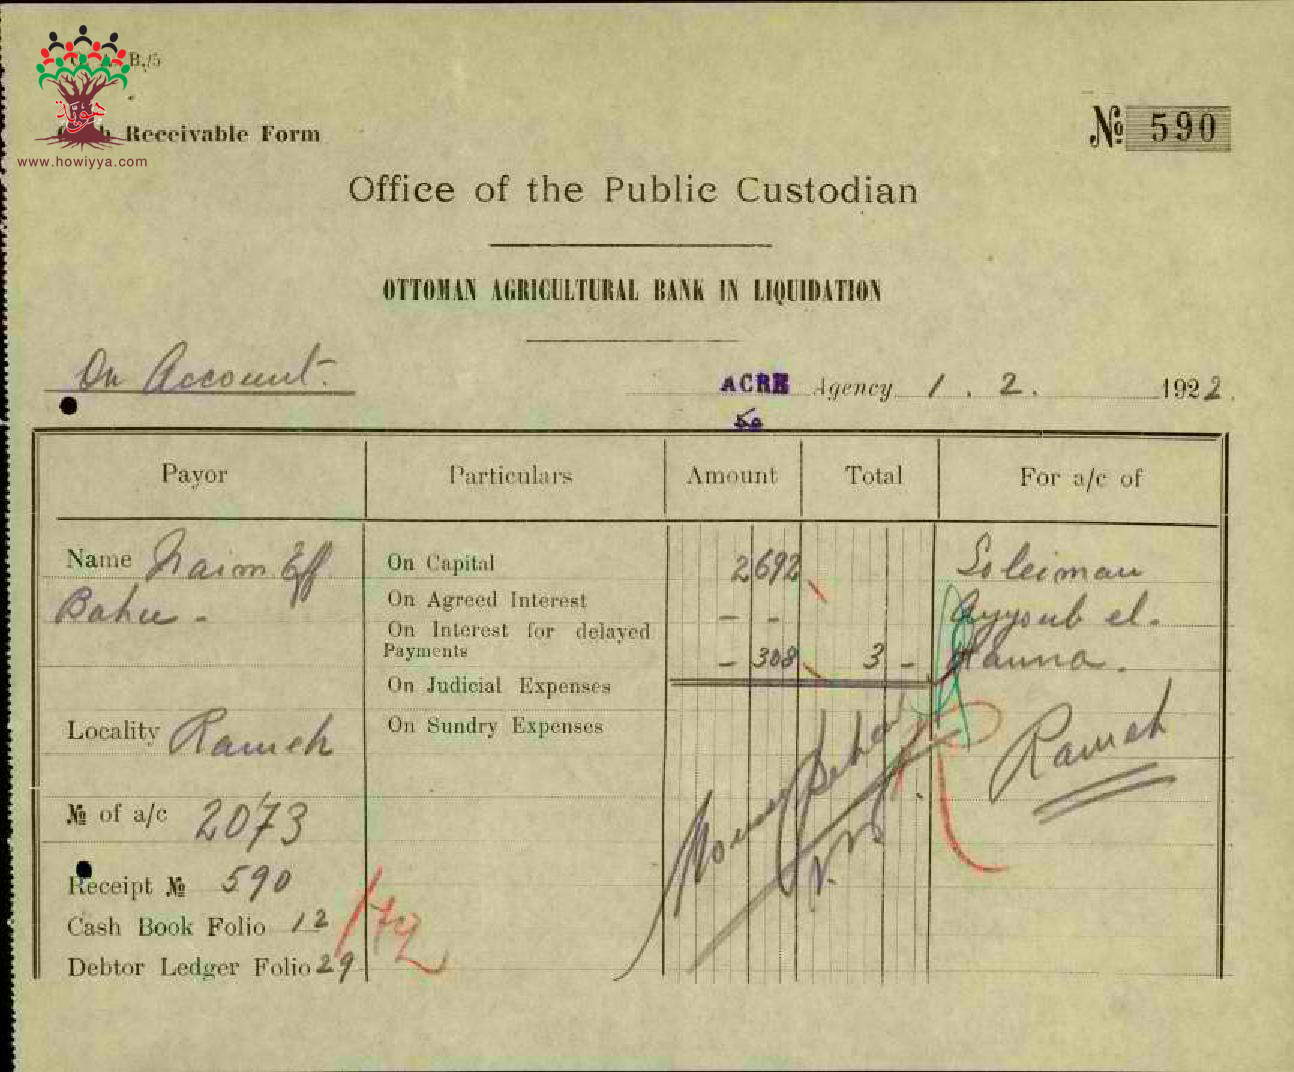 B/5
هوية
www.howiyya.com
Receivable Form
№ 590
Office of the Public Custodian
OTTOMAN AGRICULTURAL BANK IN LIQUIDATION
On Account.
ACRE Agency 1. 2. 1922.
Payor Particulars Amount Total For a/c of
Name Naim Eff. On Capital 2 692 Soleiman
Bahu - On Agreed Interest - - Ayyoub el.
On Interest for delayed
Payments - 308 3 - Hanna.
On Judicial Expenses
Locality Rameh On Sundry Expenses Rameh
№ of a/c 2073
Receipt № 590
Cash Book Folio 12
Debtor Ledger Folio 29